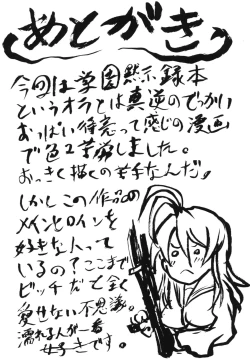 あとがき
今回は学園黙示録本
というオラとは真逆のでっかい
おっぱい得意って感じの漫画
で色々苦労しました。
おっきく描くの苦手なんだ。
しかしこの作品の
メインヒロインを
好きな人って
いるの？ここまで
ビッチだと全く
愛せない不思議。
濡れるんが一番
好きです。